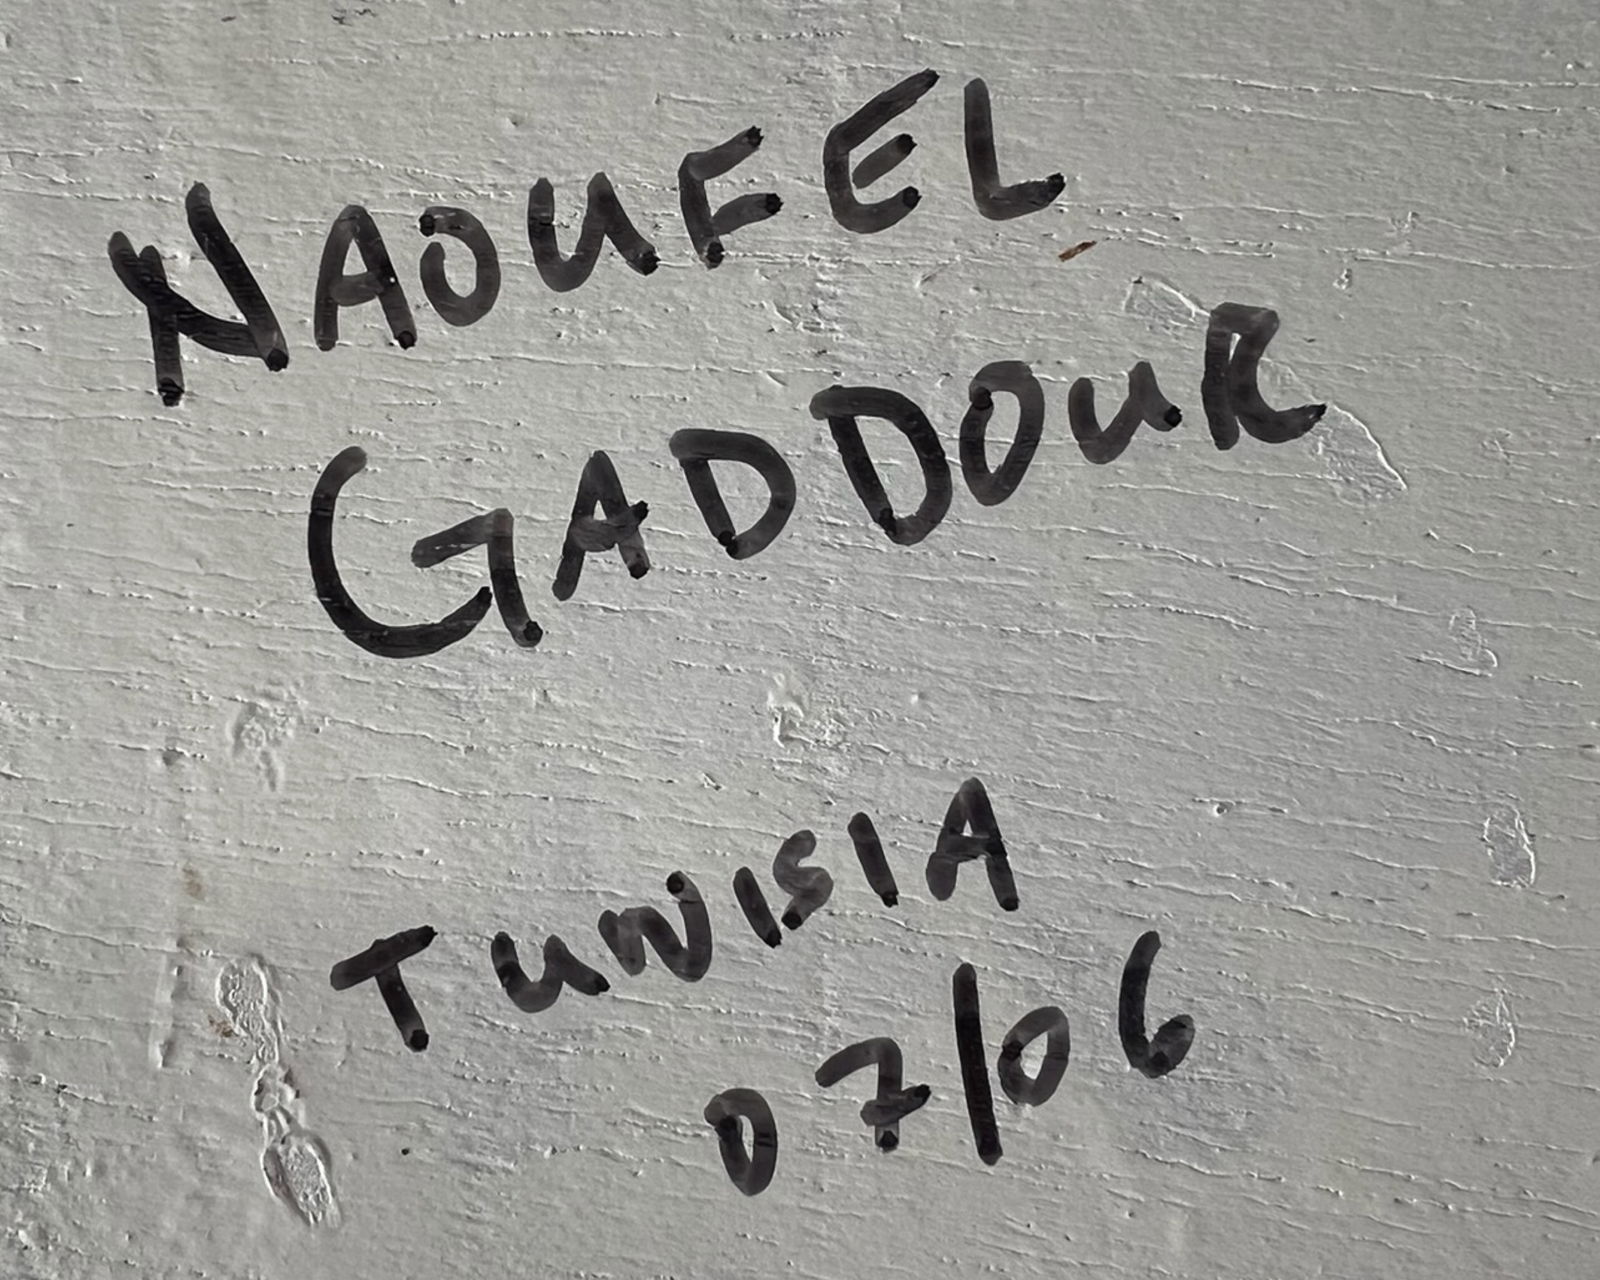 NAOUFEL
GADDOUR
TUNISIA
07/06